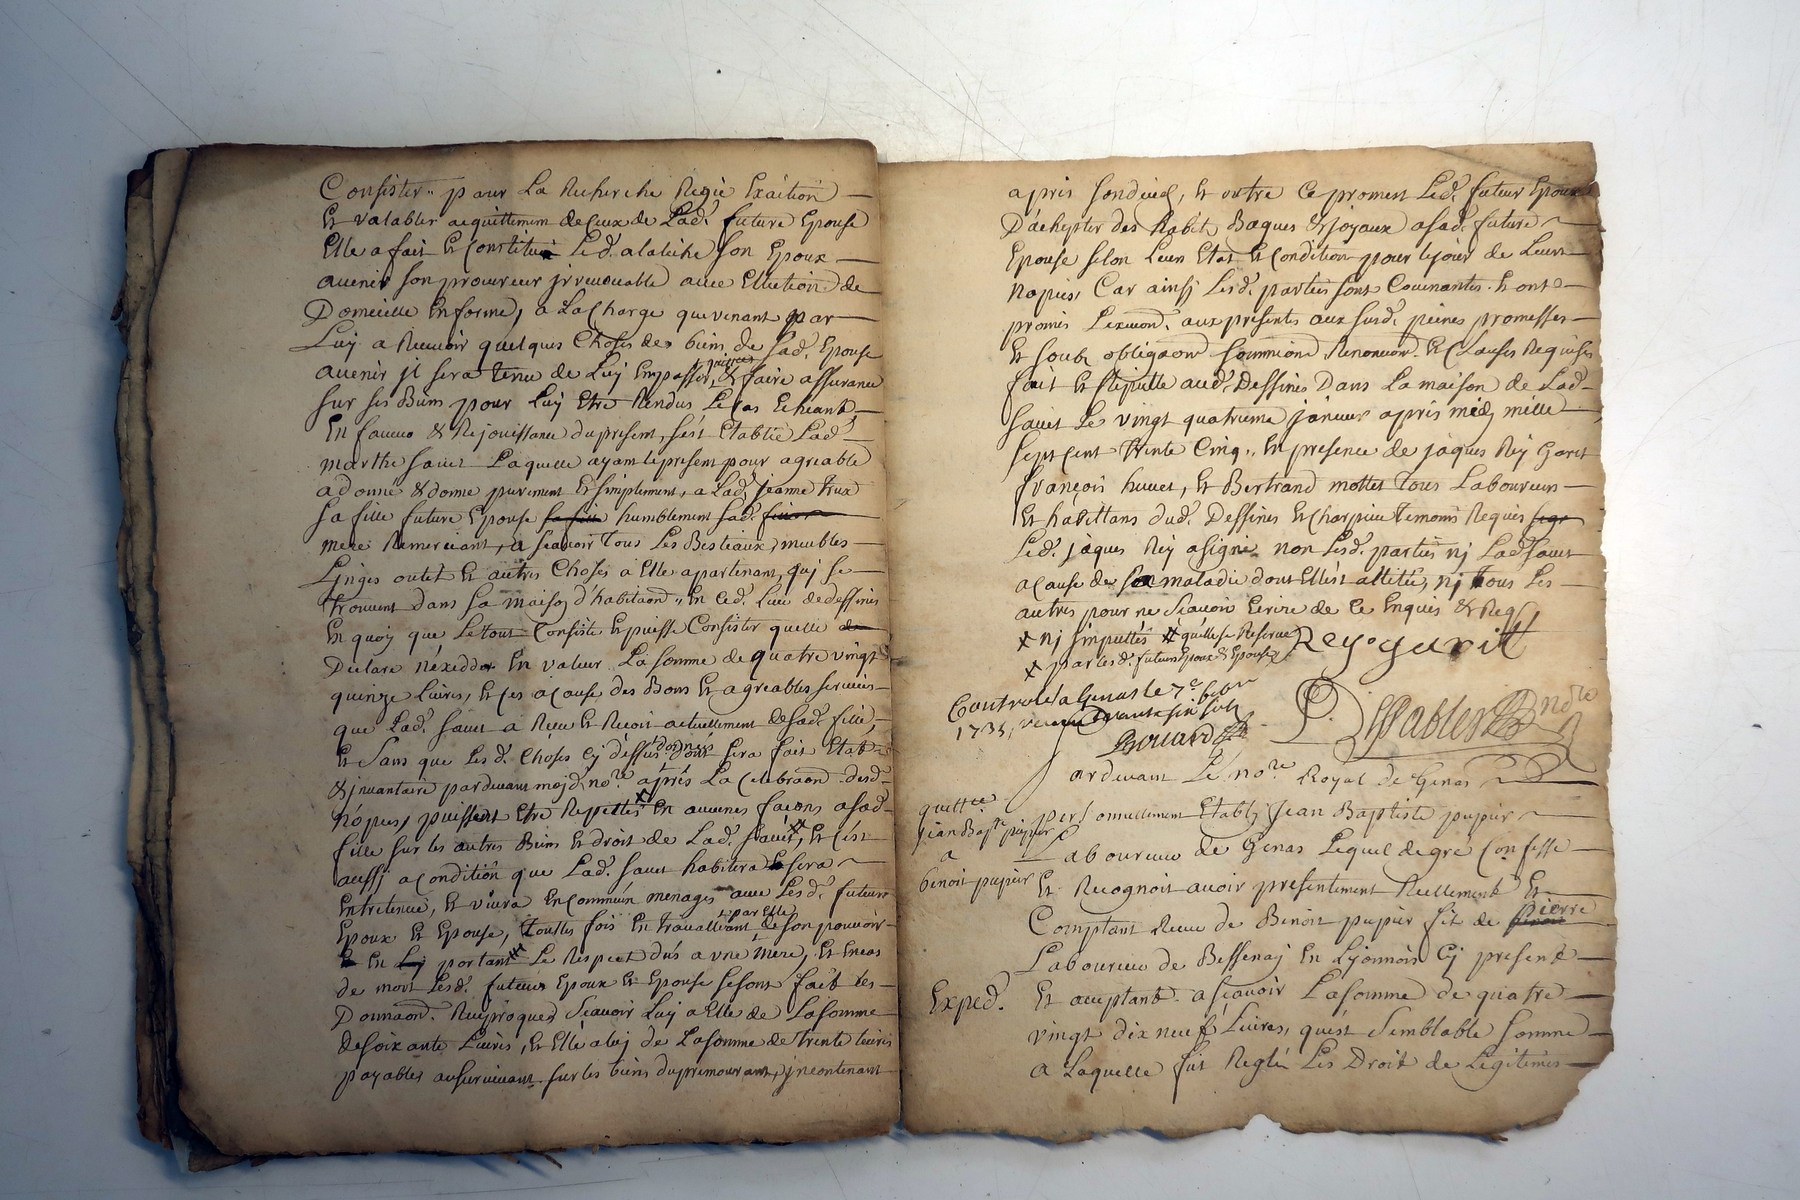 Consister,, pour La Recherche Regie Exaction
Et valable acquittement de Ceux de Lad. future Epouse
Elle a fait Et Constitué Led. alaluihe son Epoux
avenir son procureur jrrevocable avec Ellection de
Domicille En forme, a La Charge que venant par
Luy a Recevoir quelques Choses des biens de sad. Epouse
avenir jl sera tenu de Luy Empasser & faire assurance
sur ses Biens pour Luy Etre Rendus Le Cas Echeant,
En faveur & Rejouissance du present, s'est Etablie Lad
marthe sauet Laquelle ayant le present pour agreable
a donné & donne purement Et simplement, a Lad. Jeanne
sa fille future Epouse humblement sad.
mere Remerciant, a scavoir Tous Les Bestiaux, meubles
Linges outet Et autres Choses a Elle apartenant, quj se
trouvent dans sa maison d'habitaon,, En Ced. Lieu de dessines
En quoy que Le tout Consiste Et puisse Consister quelle
Declare n'exceder En valeur La somme de quatre vingt
quinze Livres, Et Ces a Cause des Bons Et agreables services
que Lad. sauet a Receu Et Recoit actuellement de sad. fille,
Et Sans que Les d. Choses Cy dessus dont sera fait Etat
& jnvantaire pardevant moj d. no.re après La Celebraon desd.
nopces, puissent Etre Repettés En aucunes façons a sad
fille sur les autres Biens Et droit de Lad. sauet, Et C'est
aussj a Condition que Lad. sauet habitera Et sera
Entretenue, Et vivra En Commun menages avec Lesd. futurs
Epoux Et Epouse, Touttes fois En travalliant par Elle de son pouvoir
En portant Le Respect dus a une Mere, Et En Cas
de mort Lesd. futurs Epoux Et Epouse se sont fait Les
Donnaon. Reciproques Scavoir Luy a Elle de La somme
de soixante Livres, Et Elle a luj de La somme de trente livres
payables au survivant sur les biens du premourant, jncontenant
apres son deces, Et outre Ce promet Led. futur Epoux
D'achepter des habit, Bagues & joyaux a sad. future
Epouse selon Leur Etat Et Condition pour le jour de Leurs
nopces, Car ainsj Lesd. parties sont Convenantes Et ont
promis L'execuon. aux presents aux susd. peines promesses
Et soub obligaon soumions Renoncion. Et Clauses Requises
fait Et Recitté aud. Dessines Dans La maison de Lad.
sauet Le vingt quatrieme janvier apres midj mille
Sept Cent Trente Cinq,, En presence de jâques Rej Garit
françois huuet, Et Bertrand mottet Tous Laboureurs
Et habittans dud. Dessines Et Charpieu temoins Requis
Led. jâques Rej a signé non Lesd. parties nj Lad. sauet
a Cause de sa maladie dont Ellest attitée, nj Tous Les
autres pour ne Scavoir Ecrire de Ce Enquis & Req
nj jmputtés quelle se Reserve Rey garit
par les d. futurs Epoux & Epouse
Controllé a Genas le 7e febvr
1735,
Bouard
ardevant Le no.re Royal de Genas
quittce personnellement Etablj Jean Baptiste pupier
jean Bapte pupier
a Laboureur de Genas Lequel de gré Confesse
benoit pupier Et Recognoit avoir presentement Reellement Et
Comptant Receu de Benoit pupier fils de pierre
Laboureur de Bessenaj En Lyonnois Cy present
Exped. Et acceptant a Scavoir La somme de quatre
vingt dix neuf Livres, quest Semblable somme
a Laquelle fut Reglé Les Droit de Legitimes